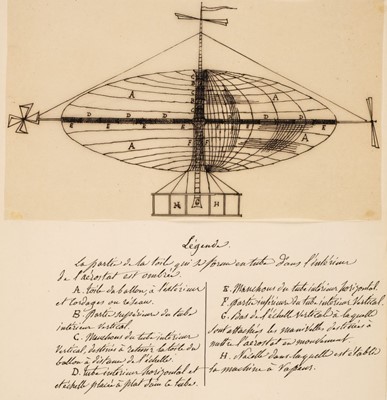 A
A
A
A
D D D D
D D D
E E E E
E E E
F F
H H
Légende
La partie de la toile qui se forme en tube dans l'intérieur
de l'aérostat est ombrée.
A. toile du ballon, à l'extérieur
et cordages ou réseau.
B. Partie supérieure du tube
intérieur vertical.
C. Manchons du tube intérieur
vertical, destinés à retenir la toile du
ballon à distance de l'échelle.
D. tube intérieur horizontal et
et échelle placée à plat dans le tube.
E. Manchons du tube intérieur horizontal.
F. partie inférieure du tube intérieur vertical.
G. Bas de l'échelle verticale à laquelle
sont attachées les manivelles destinées à
mettre l'aérostat en mouvement.
H. Nacelle dans laquelle est établie
la machine à vapeur.